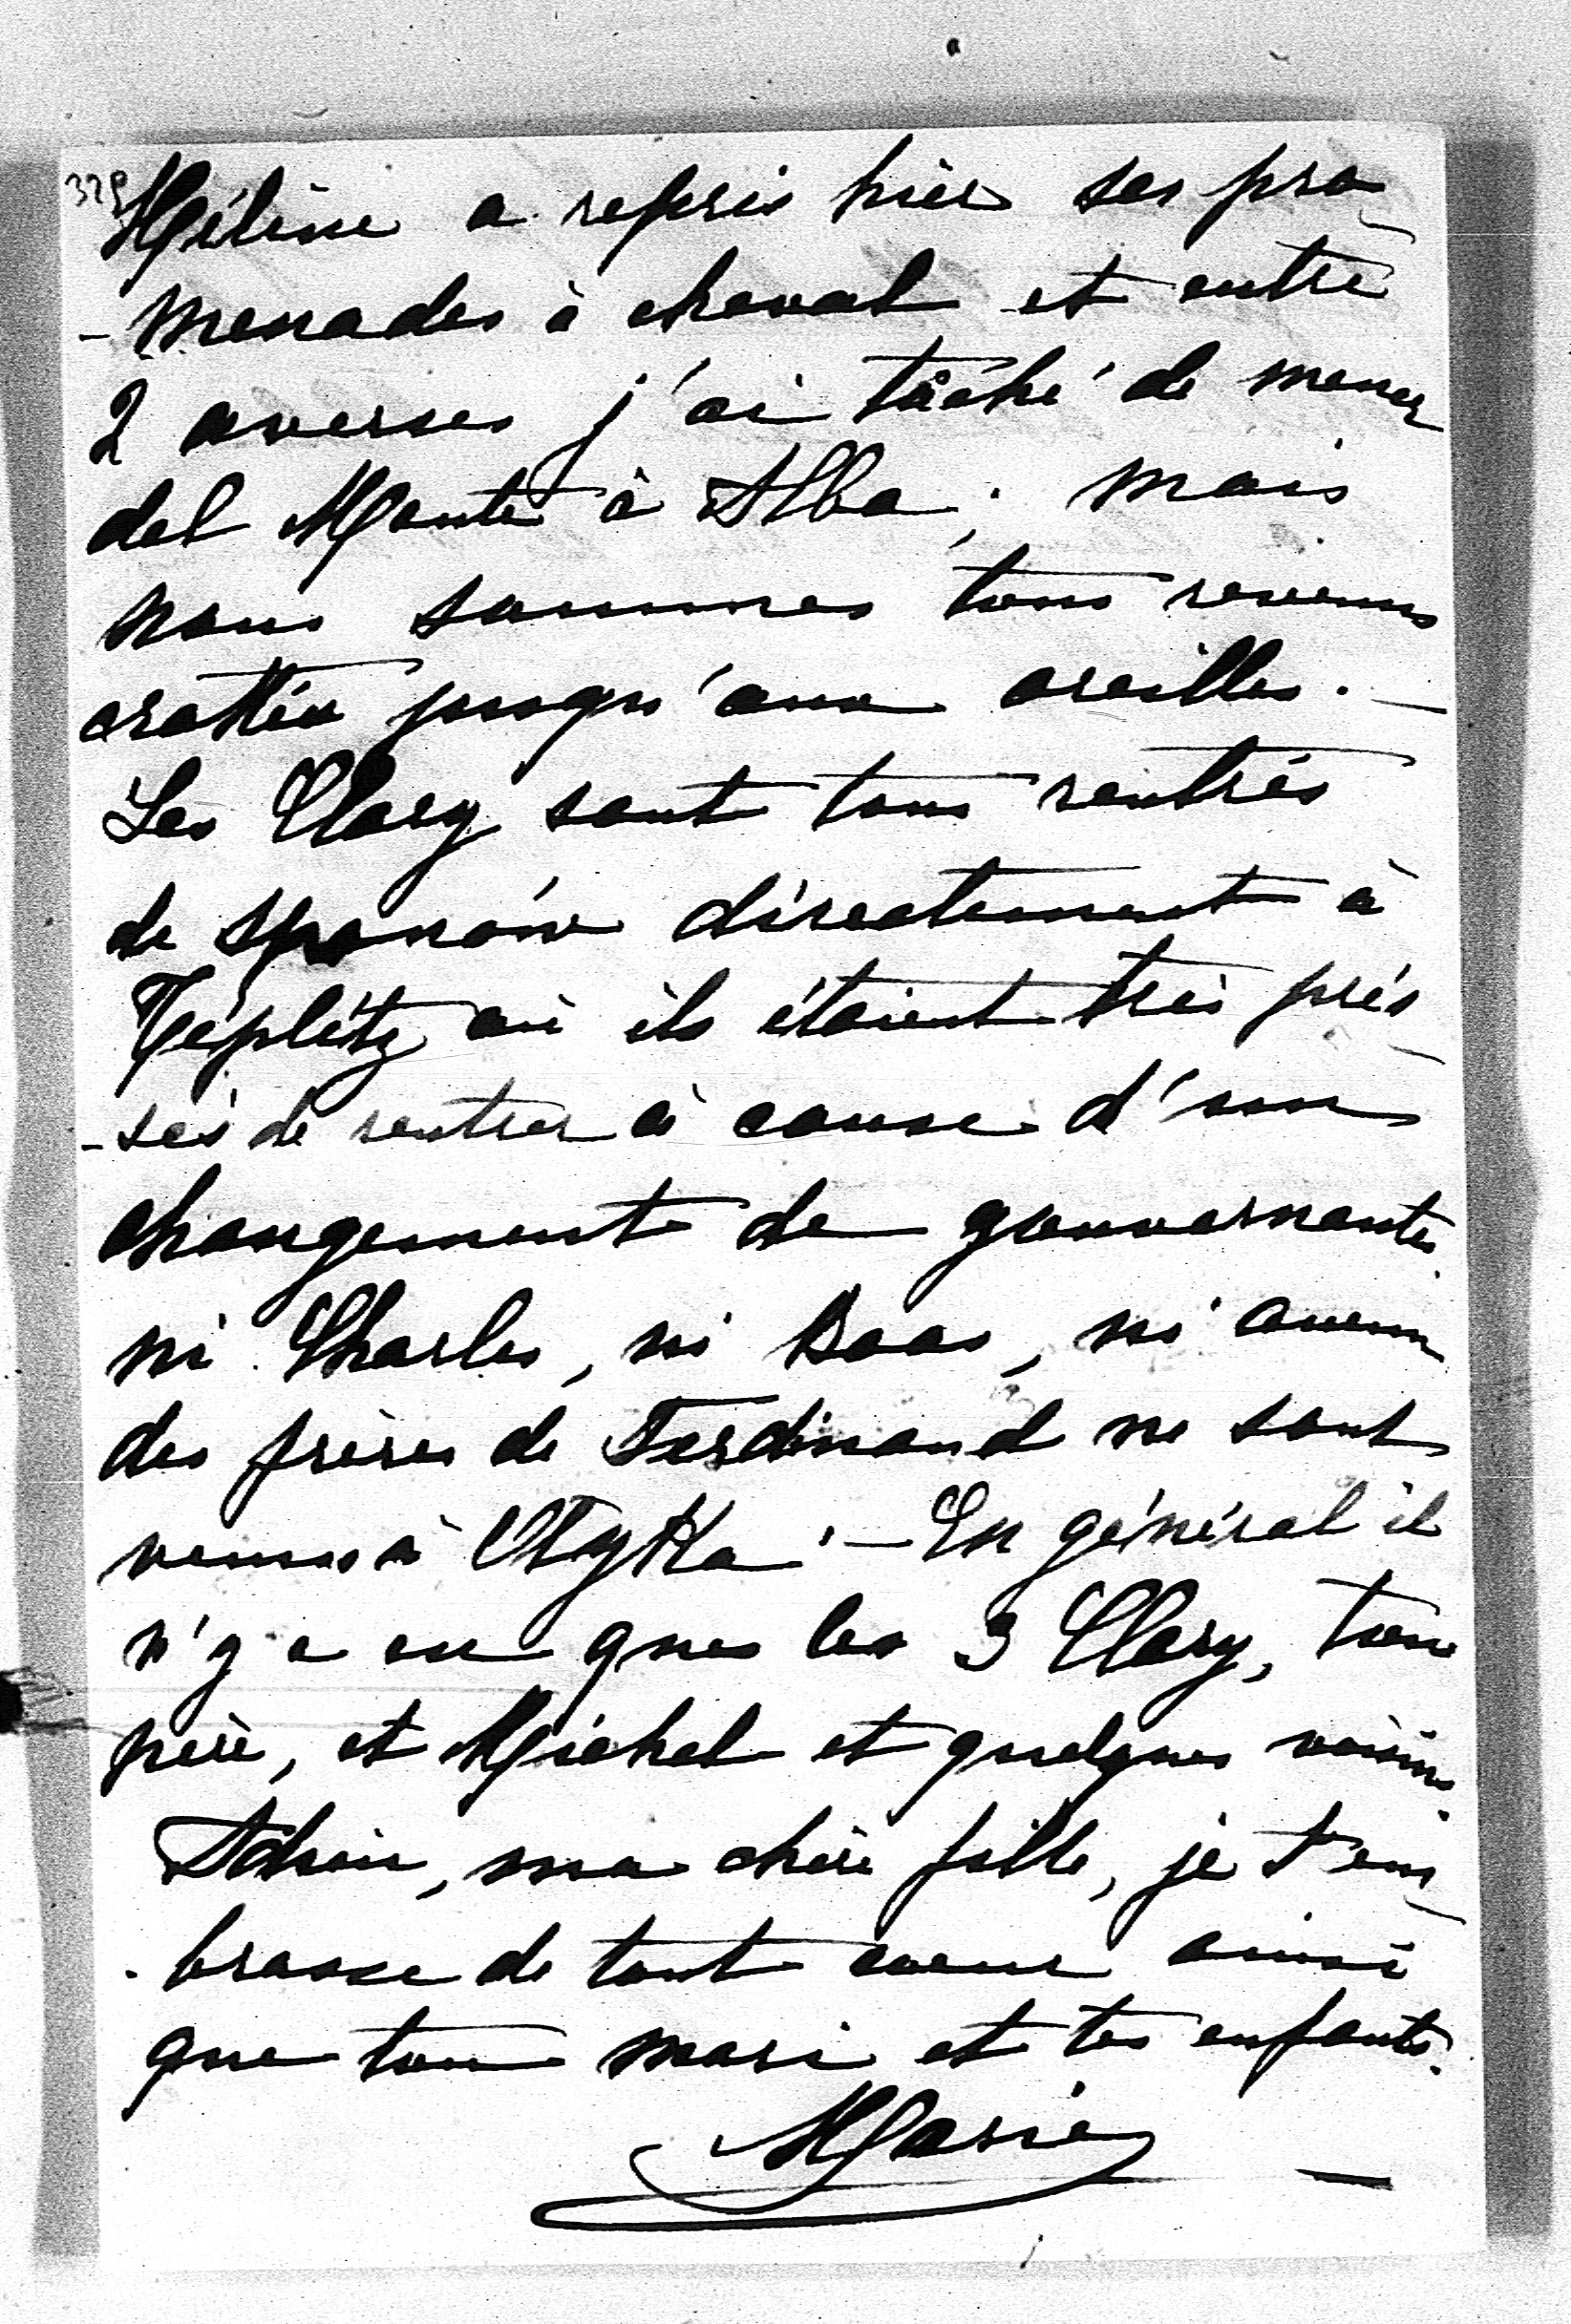 329
Hélène a repris hier ses pro
-menades à cheval et entre
2 averses j'ai tâché de mener
del Monte à Alba; mais
nous sommes tous revenus
crottés jusqu'aux oreilles. —
Les Clary sont tous rentrés
de Spanów directement à
Téplitz où ils étaient très prés
-sés de rentrer à cause d'un
changement de gouvernantes.
ni Charles, ni Baas, ni aucun
des frères de Ferdinand ne sont
venus à Olyka. — En général il
n'y a eu que les 3 Clary, ton
père, et Michel et quelques voisins.
Adieu, ma chère fille, je t'em
-brasse de tout coeur ainsi
que ton mari et tes enfants.
Marie —